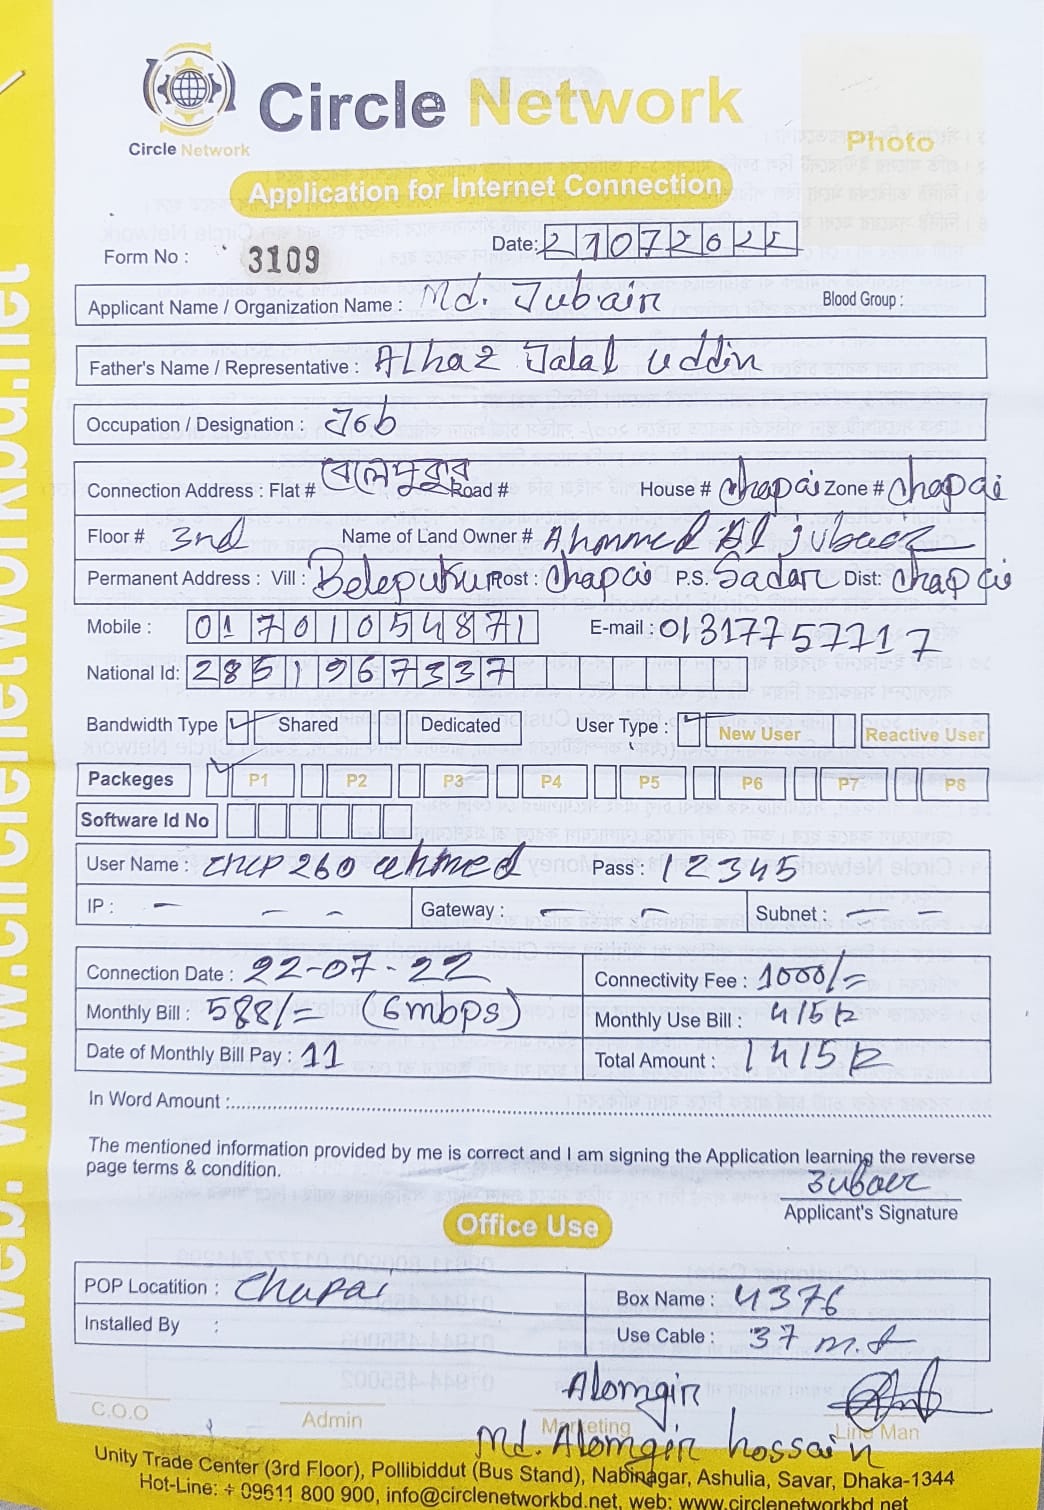 Circle Network
Circle Network
Photo
Application for Internet Connection
Form No : 3109
Date: 21072022
Applicant Name / Organization Name : Md. Jubair Blood Group :
Father's Name / Representative : Alhaz Jalal Uddin
Occupation / Designation : Job
Connection Address : Flat # বেলেপুকুর Road # House # Chapai Zone # Chapai
Floor # 3rd Name of Land Owner # Ahmmed Al jubaer
Permanent Address : Vill : Belepukur Post : Chapai P.S. Sadar Dist: Chapai
Mobile : 01701054871 E-mail : 01317757717
National Id: 2851967337
Bandwidth Type Shared Dedicated User Type : New User Reactive User
Packeges P1 P2 P3 P4 P5 P6 P7 P8
Software Id No
User Name : CHCP260 ahmed Pass : 12345
IP : – – – Gateway : – – Subnet : – –
Connection Date : 22-07-22 Connectivity Fee : 1000/=
Monthly Bill : 588/= (6mbps) Monthly Use Bill : 415
Date of Monthly Bill Pay : 11 Total Amount : 1415
In Word Amount :
The mentioned information provided by me is correct and I am signing the Application learning the reverse
page terms & condition.
Zubaer
Applicant's Signature
Office Use
POP Locatition : Chapai Box Name : 4376
Installed By : Use Cable : 37 m.t
Alomgir
C.O.O Admin Marketing Line Man
Md. Alomgir hossain
Unity Trade Center (3rd Floor), Pollibiddut (Bus Stand), Nabinagar, Ashulia, Savar, Dhaka-1344
Hot-Line: + 09611 800 900, info@circlenetworkbd.net, web: www.circlenetworkbd.net
web: www.circlenetworkbd.net